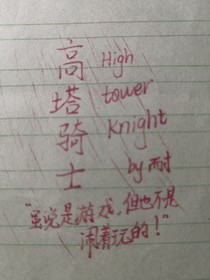 高 High
塔 tower
骑 Knight
士 by 耐
"虽说是游戏，但也不是
闹着玩的！"